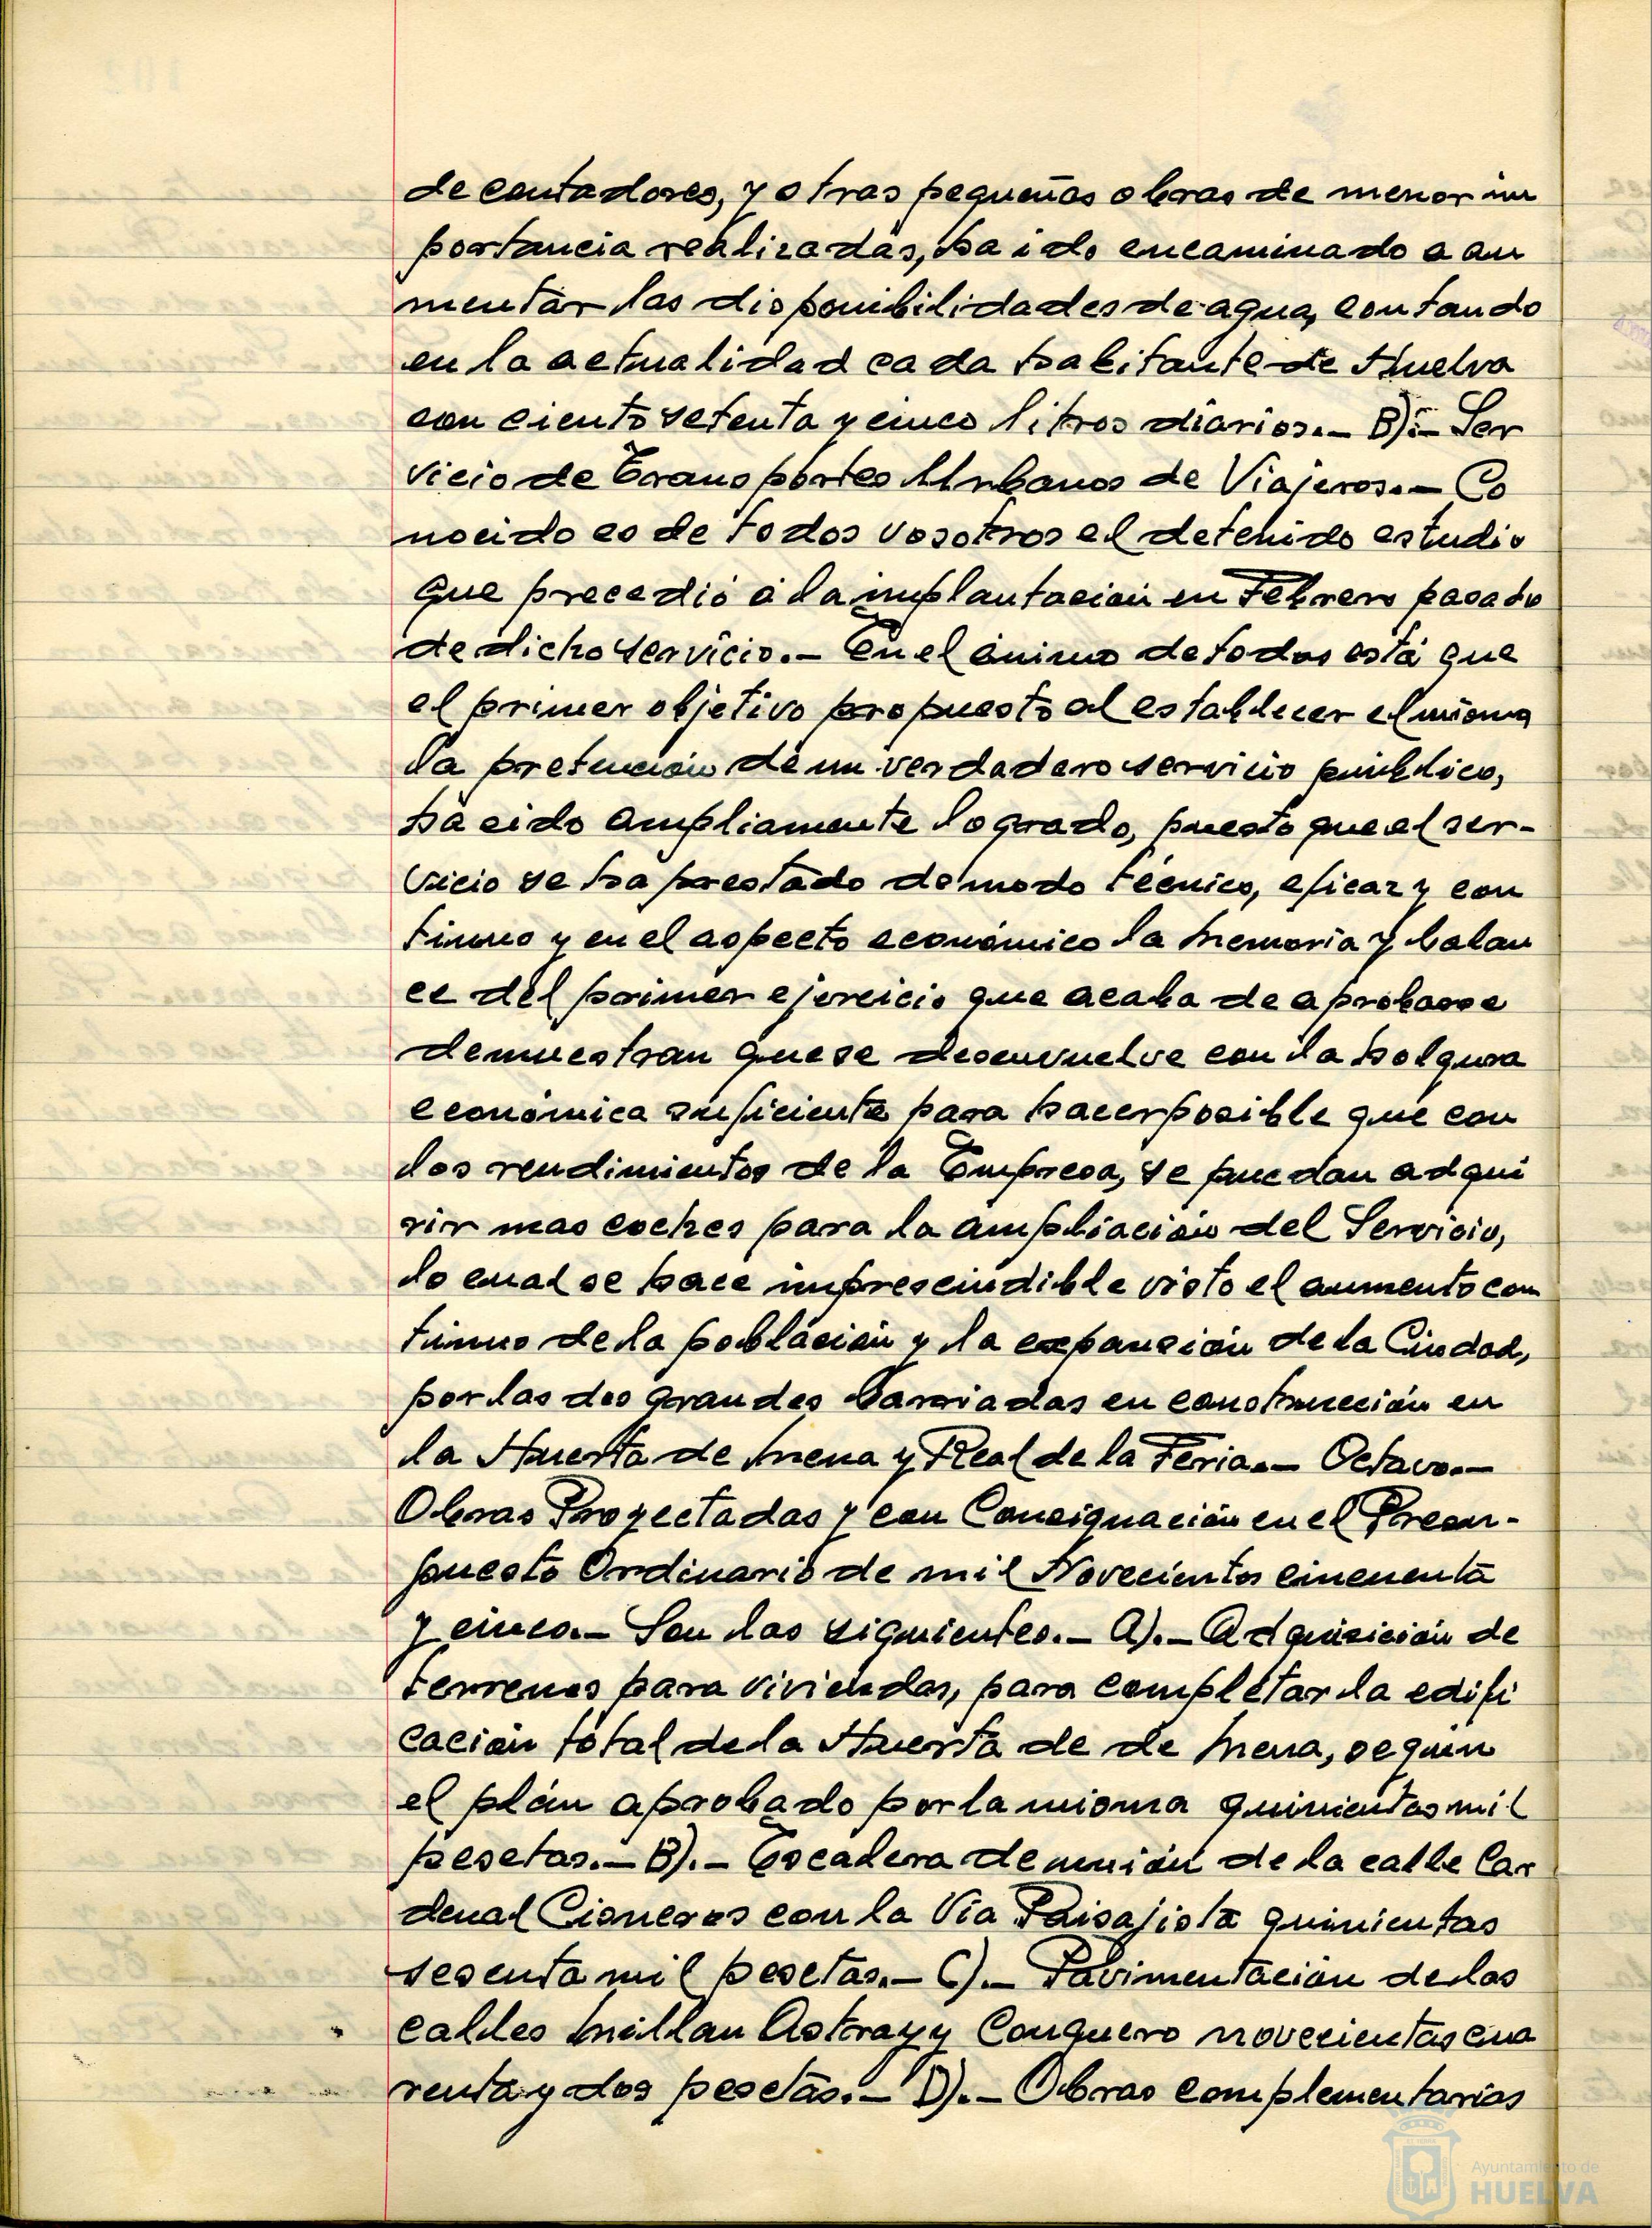 de contadores, y otras pequeñas obras de menor im
portancia realizadas, ha ido encaminado a au
mentar las disponibilidades de agua, contando
en la actualidad cada habitante de Huelva
con ciento setenta y cinco litros diarios.- B).- Ser
vicio de Transportes Urbanos de Viajeros.- Co
nocido es de todos vosotros el detenido estudio
que precedió a la implantación en Febrero pasado
de dicho servicio.- En el ánimo de todos está que
el primer objetivo propuesto al establecer el mismo
la pretención de un verdadero servicio público,
ha sido ampliamente logrado, puesto que el ser-
vicio se ha prestado de modo técnico, eficaz y con
tinuo y en el aspecto económico la Memoria y balan
ce del primer ejercicio que acaba de aprobarse
demuestran que se desenvuelve con la holgura
económica suficiente para hacer posible que con
los rendimientos de la Empresa, se puedan adqui
rir mas coches para la ampliación del Servicio,
lo cual se hace imprescindible visto el aumento con
tinuo de la población y la expansión de la Ciudad,
por las dos grandes barriadas en construcción en
la Huerta de Mena y Real de la Feria.- Octavo.-
Obras Proyectadas y con Consignación en el Presu-
puesto Ordinario de mil Novecientos cincuenta
y cinco.- Son las siguientes.- A).- Adquisición de
terrenos para viviendas, para completar la edifi
cación total de la Huerta de de Mena, según
el plán aprobado por la misma quinientas mil
pesetas.- B).- Escalera de unión de la calle Car
denal Cisneros con la Vía Paisajista quinientas
sesenta mil pesetas.- C).- Pavimentación de las
calles Millan Astray y Conquero novecientas cua
renta y dos pesetas.- D).- Obras complementarias
Ayuntamiento de
HUELVA